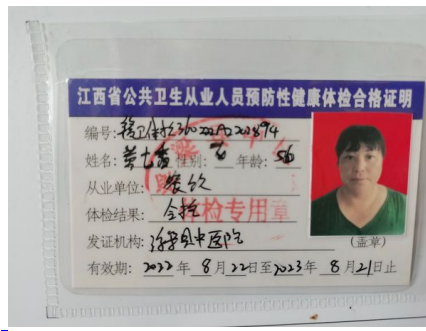 江西省公共卫生从业人员预防性健康体检合格证明
编号:
姓名: 性别: 女 年龄: 56
从业单位: 餐饮
体检结果: 合格
体检专用章
发证机构: 中医院 (盖章)
有效期: 2022年8月22日至2023年8月21日止